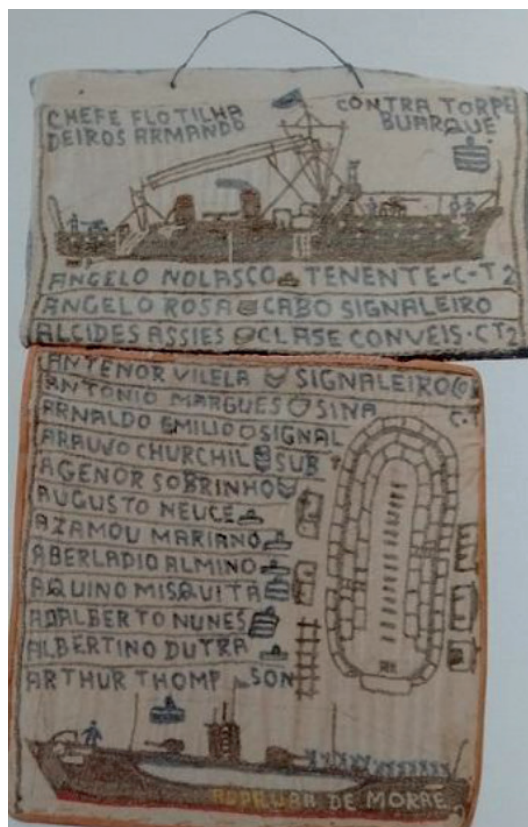 CHEFE FLOTILHA CONTRA TORPE
DEIROS ARMANDO BUARQUE
2
ANGELO NOLASCO TENENTE-C-T2
ANGELO ROSA CABO SIGNALEIRO
ALCIDES ASSIES CLASE CONVEIS·CT2
ANTENOR VILELA SIGNALEIRO
ANTONIO MARGUES SINA C-T
ARNALDO EMILIO SIGNAL
ARAUJO CHURCHIL SUB T
AGENOR SOBRINHO
AUGUSTO NEUCE
AZAMOU MARIANO
ABERLADIO ALMINO
AQUINO MISQUITA
ADALBERTO NUNES
ALBERTINO DUTRA
ARTHUR THOMP SON
DE MORAE